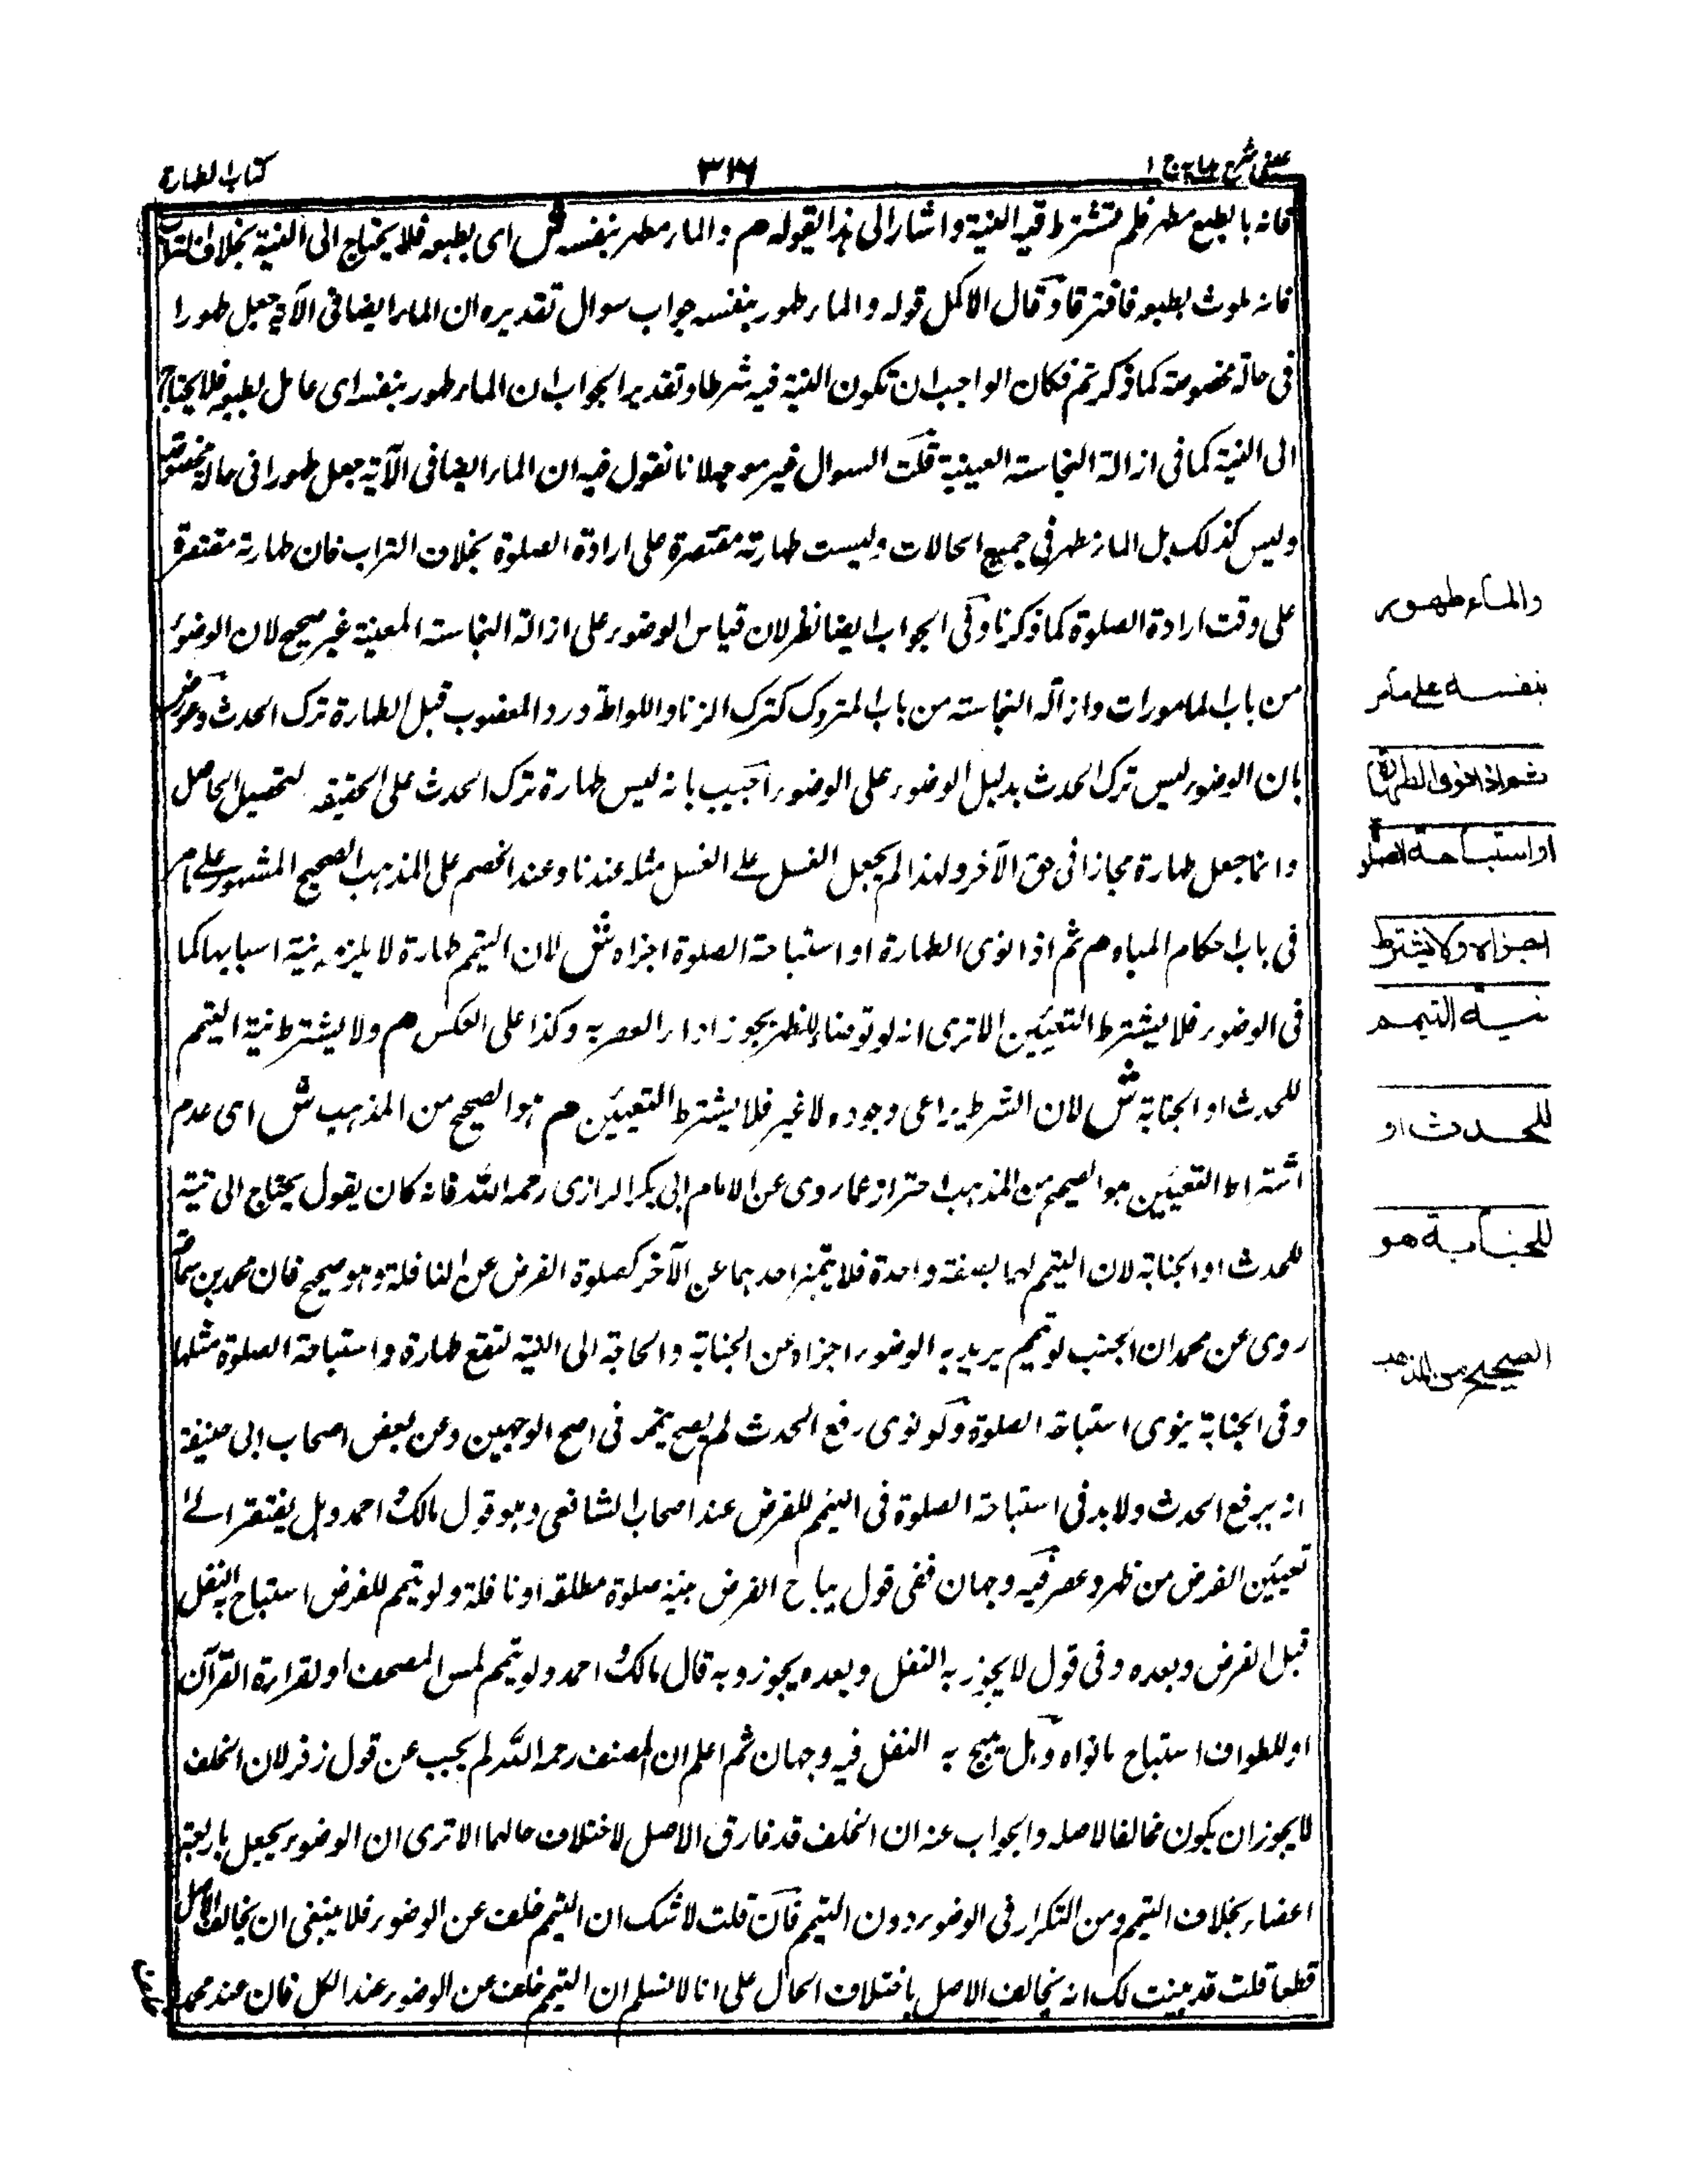 عینی شرح هدایة ج ۱
۳۱۶
کتاب الطهارة
فانه بالطبع مطهر فلم تشترط فیه النیة واشار الی هذا بقوله هم والماء مطهر بنفسه ش ای بطبعه فلا یحتاج الی النیة بخلاف التراب
فانه ملوث بطبعه فافترقا وقال الاکمل قوله والماء طهور بنفسه جواب سوال تقدیره ان الماء ایضا فی الآیة جعل طهورا
فی حالة مخصوصة کما ذکرتم فکان الواجب ان تکون النیة فیه شرطا وتقدیر الجواب ان الماء طهور بنفسه ای عامل بطبعه فلا یحتاج
الی النیة کما فی ازالة النجاسة العینیة قلت السوال غیر موجه لانا نقول فیه ان الماء ایضا فی الآیة جعل طهورا فی حالة مخصوصة
ولیس کذلک بل الماء مطهر فی جمیع الحالات ولیست طهارته مقتصرة علی ارادة الصلوة بخلاف التراب فان طهارته مقتصرة
علی وقت ارادة الصلوة کما ذکرنا وفی الجواب ایضا نظر لان قیاس الوضوء علی ازالة النجاسة المعینة غیر صحیح لان الوضوء
من باب المامورات وازالة النجاسة من باب المتروک کترک الزنا واللواطة ورد المغصوب قبل الطهارة ترک الحدث وعورض
بان الوضوء لیس ترک الحدث بدلیل الوضوء علی الوضوء اجیب بانه لیس طهارة ترک الحدث علی الحقیقه لتحصیل الحاصل
وانما جعل طهارة مجازا فی حق الآخر ولهذا لم یجعل الغسل علی الغسل مثله عندنا وعند الخصم علی المذهب الصحیح المشهور علی ما مر
فی باب احکام المیاه هم ثم اذا نوی الطهارة او استباحة الصلوة اجزاه ش لان التیمم طهارة لا یلزمه نیة اسبابها کما
فی الوضوء فلا یشترط التعیین الا تری انه لو توضا للظهر یجوز اداء العصر به وکذا علی العکس هم ولا یشترط نیة التیمم
للحدث او الجنابة ش لان الشرط یراعی وجوده لا غیر فلا یشترط التعیین هم هو الصحیح من المذهب ش ای عدم
اشتراط التعیین هو الصحیح من المذهب احتراز عما روی عن الامام ابی بکر الرازی رحمه الله فانه کان یقول یحتاج الی نیة
للحدث او الجنابة لان التیمم لهما بصفة واحدة فلا یتمیز احدهما عن الآخر کصلوة الفرض عن النافلة وهو صحیح فان محمد بن سماعة
روی عن محمد ان الجنب لو تیمم یرید به الوضوء اجزاه عن الجنابة والحاجة الی النیة لتقع طهارة واستباحة الصلوة مثلها
وفی الجنابة ینوی استباحة الصلوة ولو نوی رفع الحدث لم یصح تیممه فی اصح الوجهین وعن بعض اصحاب ابی حنیفة
انه یرفع الحدث ولابد فی استباحة الصلوة فی التیمم للفرض عند اصحاب الشافعی وهو قول مالک واحمد وهل یفتقر الی
تعیین الفرض من ظهر وعصر فیه وجهان ففی قول یباح الفرض بنیة صلوة مطلقه او نافلة ولو تیمم للفرض استباح به النفل
قبل الفرض وبعده وفی قول لا یجوز به النفل وبعده یجوز وبه قال مالک واحمد ولو تیمم لمس المصحف او لقراءة القرآن
او للطواف استباح ما نواه وهل یبیح به النفل فیه وجهان ثم اعلم ان المصنف رحمه الله لم یجب عن قول زفر لان الخلف
لا یجوز ان یکون مخالفا لاصله والجواب عنه ان الخلف قد فارق الاصل لاختلاف حالهما الا تری ان الوضوء یجعل باربعة
اعضاء بخلاف التیمم ومن التکرار فی الوضوء دون التیمم فان قلت لا شک ان التیمم خلف عن الوضوء فلا ینبغی ان یخالف الاصل
قطعا قلت قد بینت لک انه یخالف الاصل باختلاف الحال علی انا لا نسلم ان التیمم خلف عن الوضوء عند الکل فان عند محمد
والماء طهور
بنفسه علی مامر
ثم اذا نوی الطهارة
او استباحة الصلوة
اجزاه ولا یشترط
نیة التیمم
للحدث او
للجنابة هو
الصحیح من المذهب